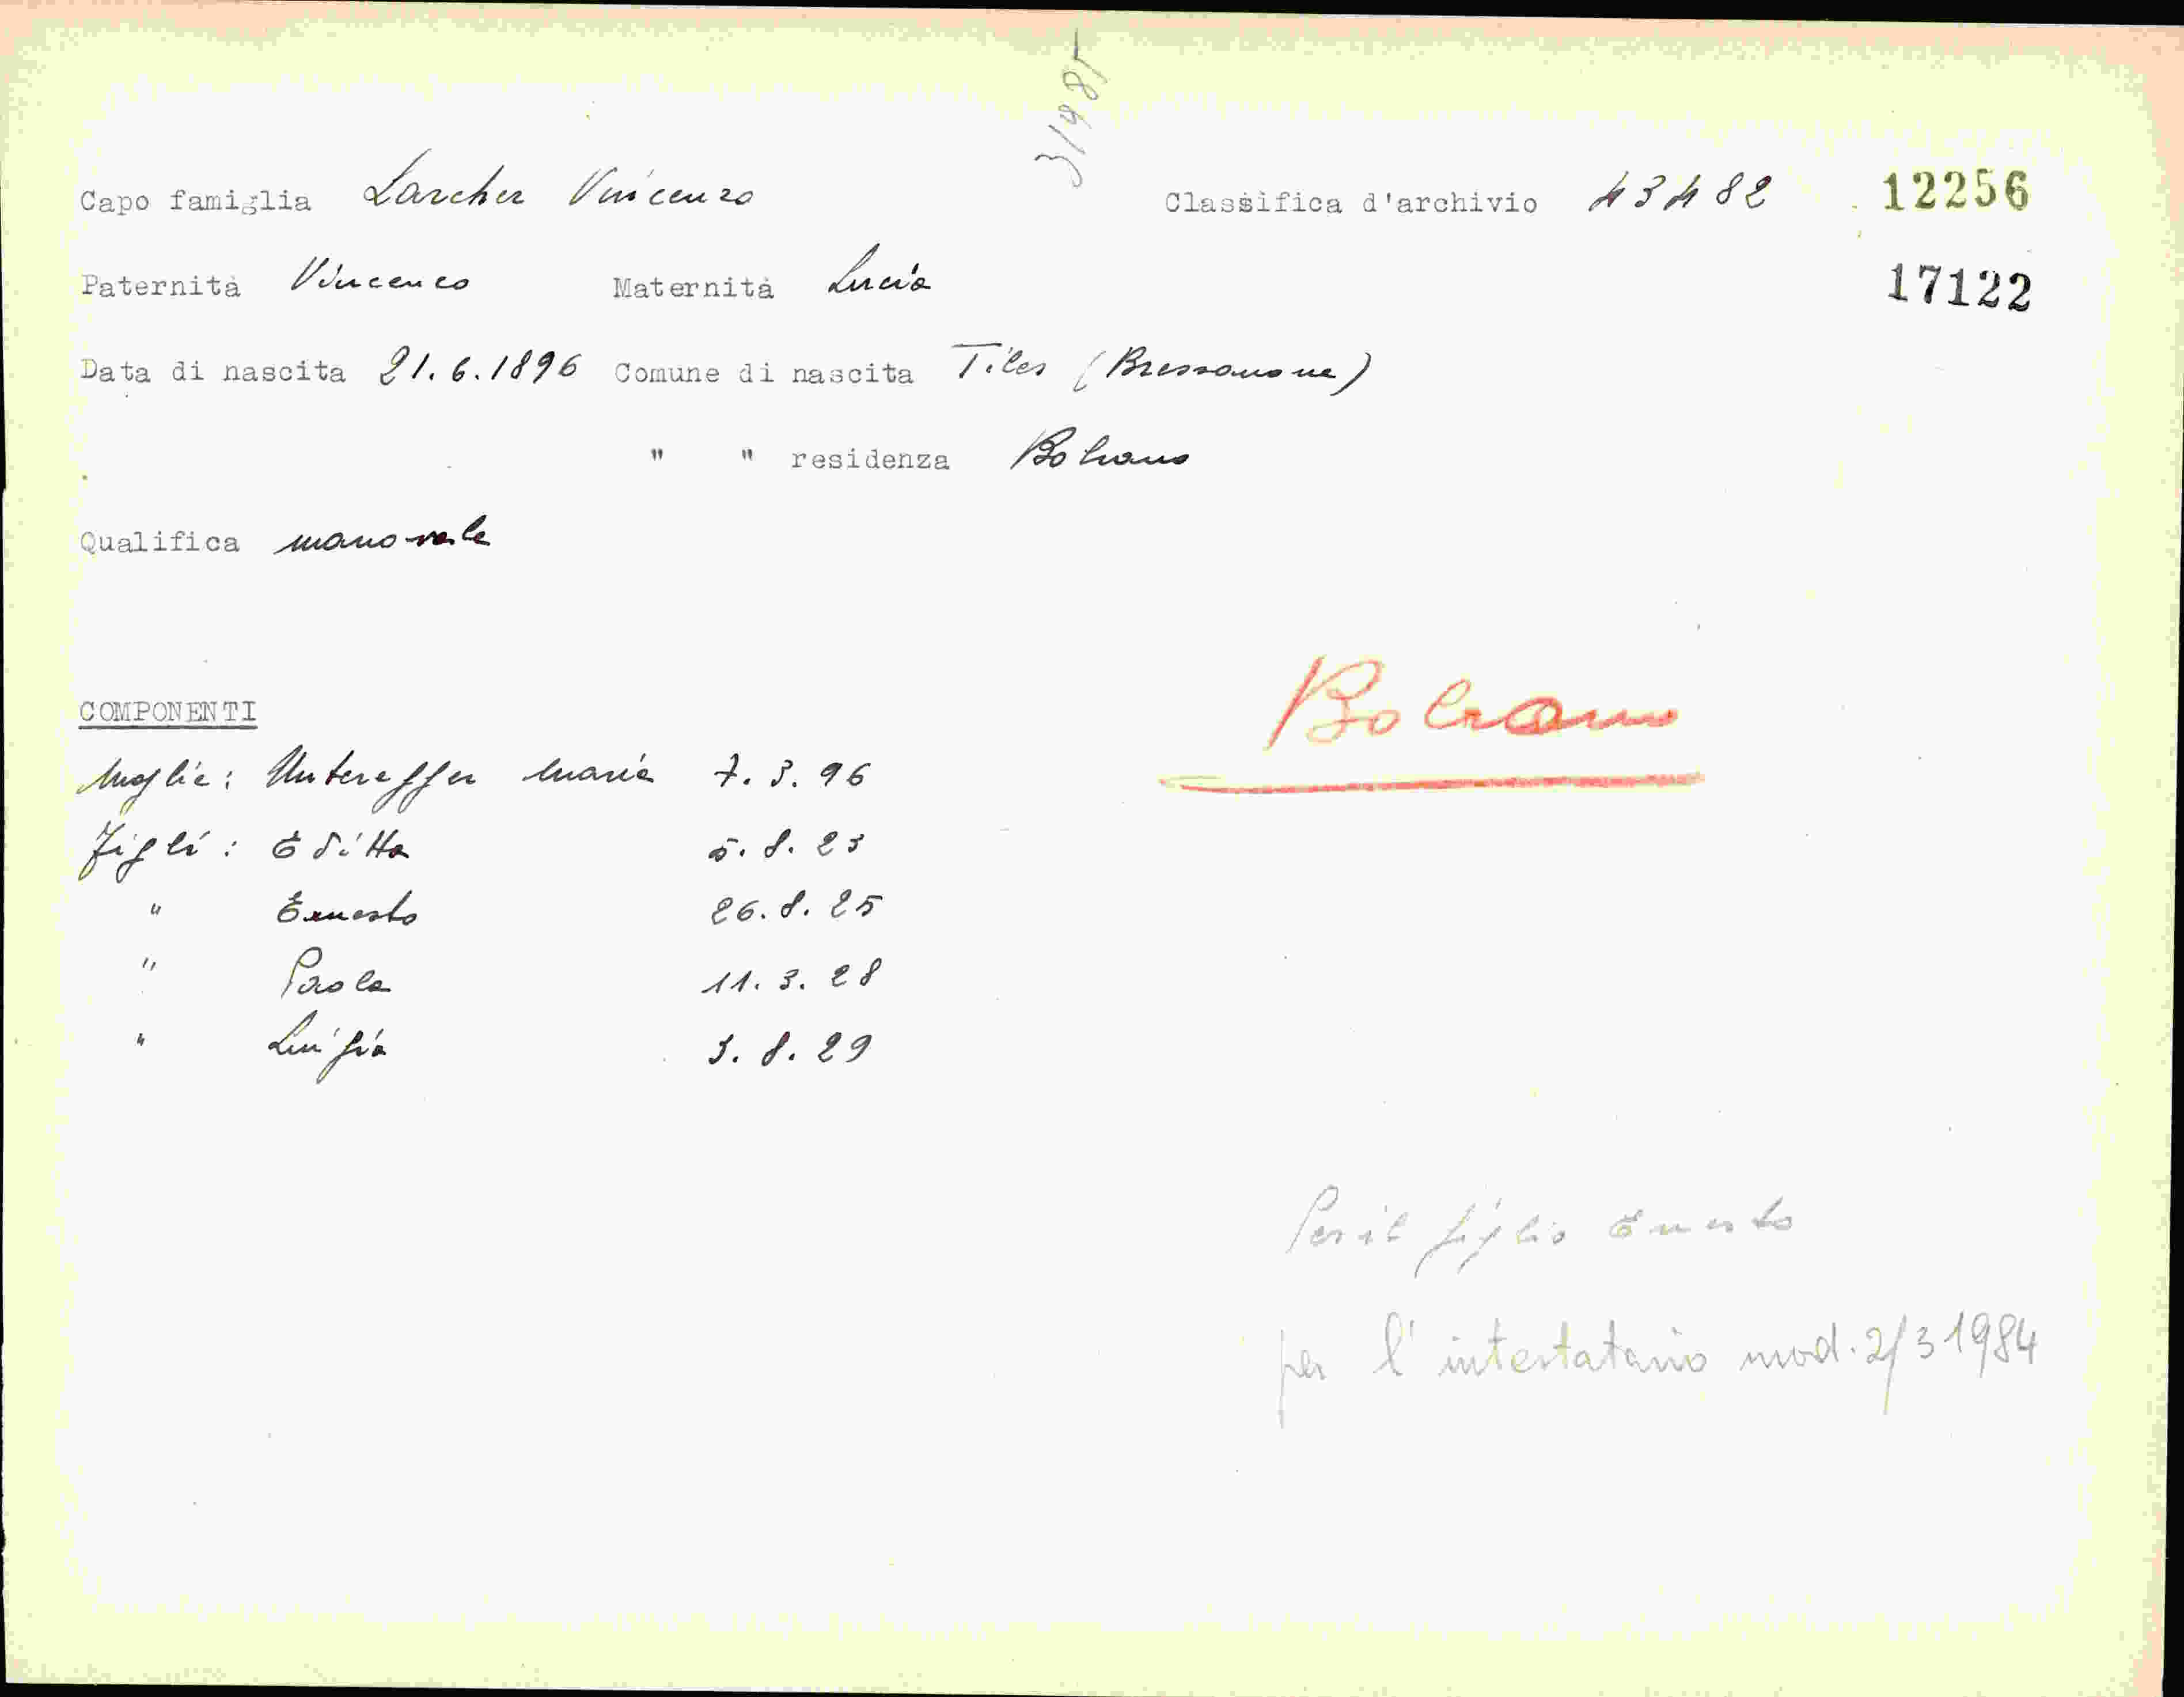 31485
Capo famiglia Larcher Vincenzo Classifica d'archivio 43482 12256
Paternità Vincenzo Maternità Lucia 17122
Data di nascita 21.6.1896 Comune di nascita Tiles (Bressanone)
" " residenza Bolzano
Qualifica manovale
Bolzano
COMPONENTI
Moglie: Untereffer Maria 7.3.96
Figli: Editta 5.8.23
" Ernesto 26.8.25
" Paola 11.3.28
" Luigia 3.8.29
Per il figlio Ernesto
per l'intestatario mod. 2/3 1984